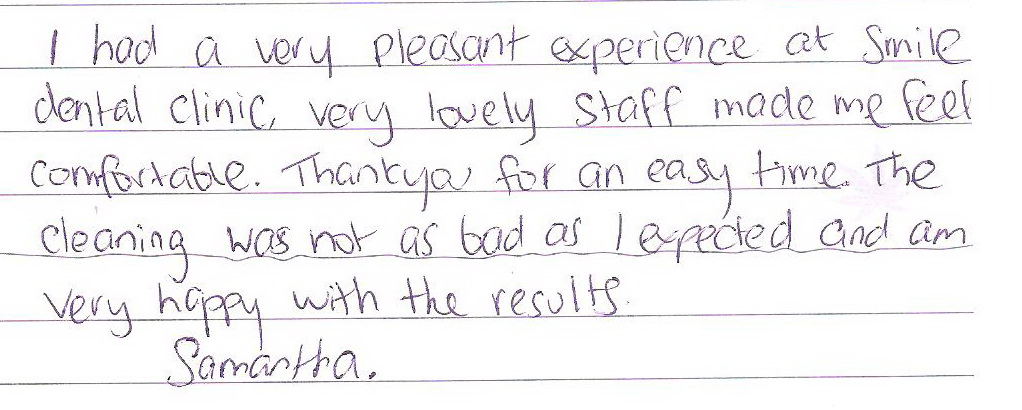 I had a very pleasant experience at Smile
dental clinic, very lovely staff made me feel
comfortable. Thankyou for an easy time. The
cleaning was not as bad as I expected and am
very happy with the results.
Samantha.